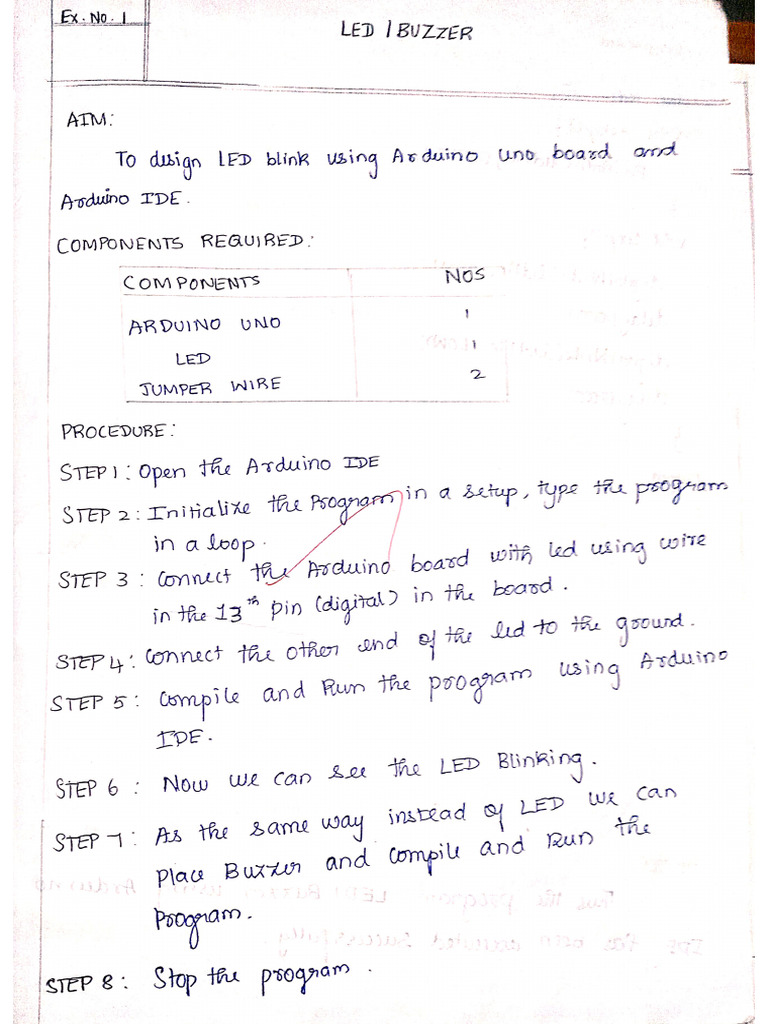 Ex. No. 1
LED / BUZZER
AIM:
To design LED blink using Arduino uno board and
Arduino IDE.
COMPONENTS REQUIRED:
COMPONENTS NOS
ARDUINO UNO 1
LED 1
JUMPER WIRE 2
PROCEDURE:
STEP 1: Open the Arduino IDE
STEP 2: Initialize the Program in a setup, type the program
in a loop.
STEP 3: Connect the Arduino board with led using wire
in the 13th pin (digital) in the board.
STEP 4: Connect the other end of the led to the ground.
STEP 5: Compile and Run the program using Arduino
IDE.
STEP 6: Now we can see the LED Blinking.
STEP 7: As the same way instead of LED we can
place Buzzer and compile and Run the
Program.
STEP 8: Stop the program.